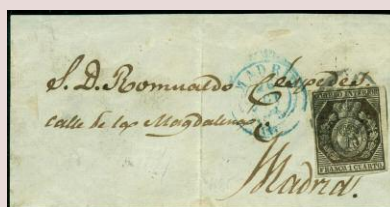 S. D. Romualdo Cespedes.
calle de las Magdalenas
Madrid.
MADRID
CORREO INTERIOR
FRANCO 1 CUARTO